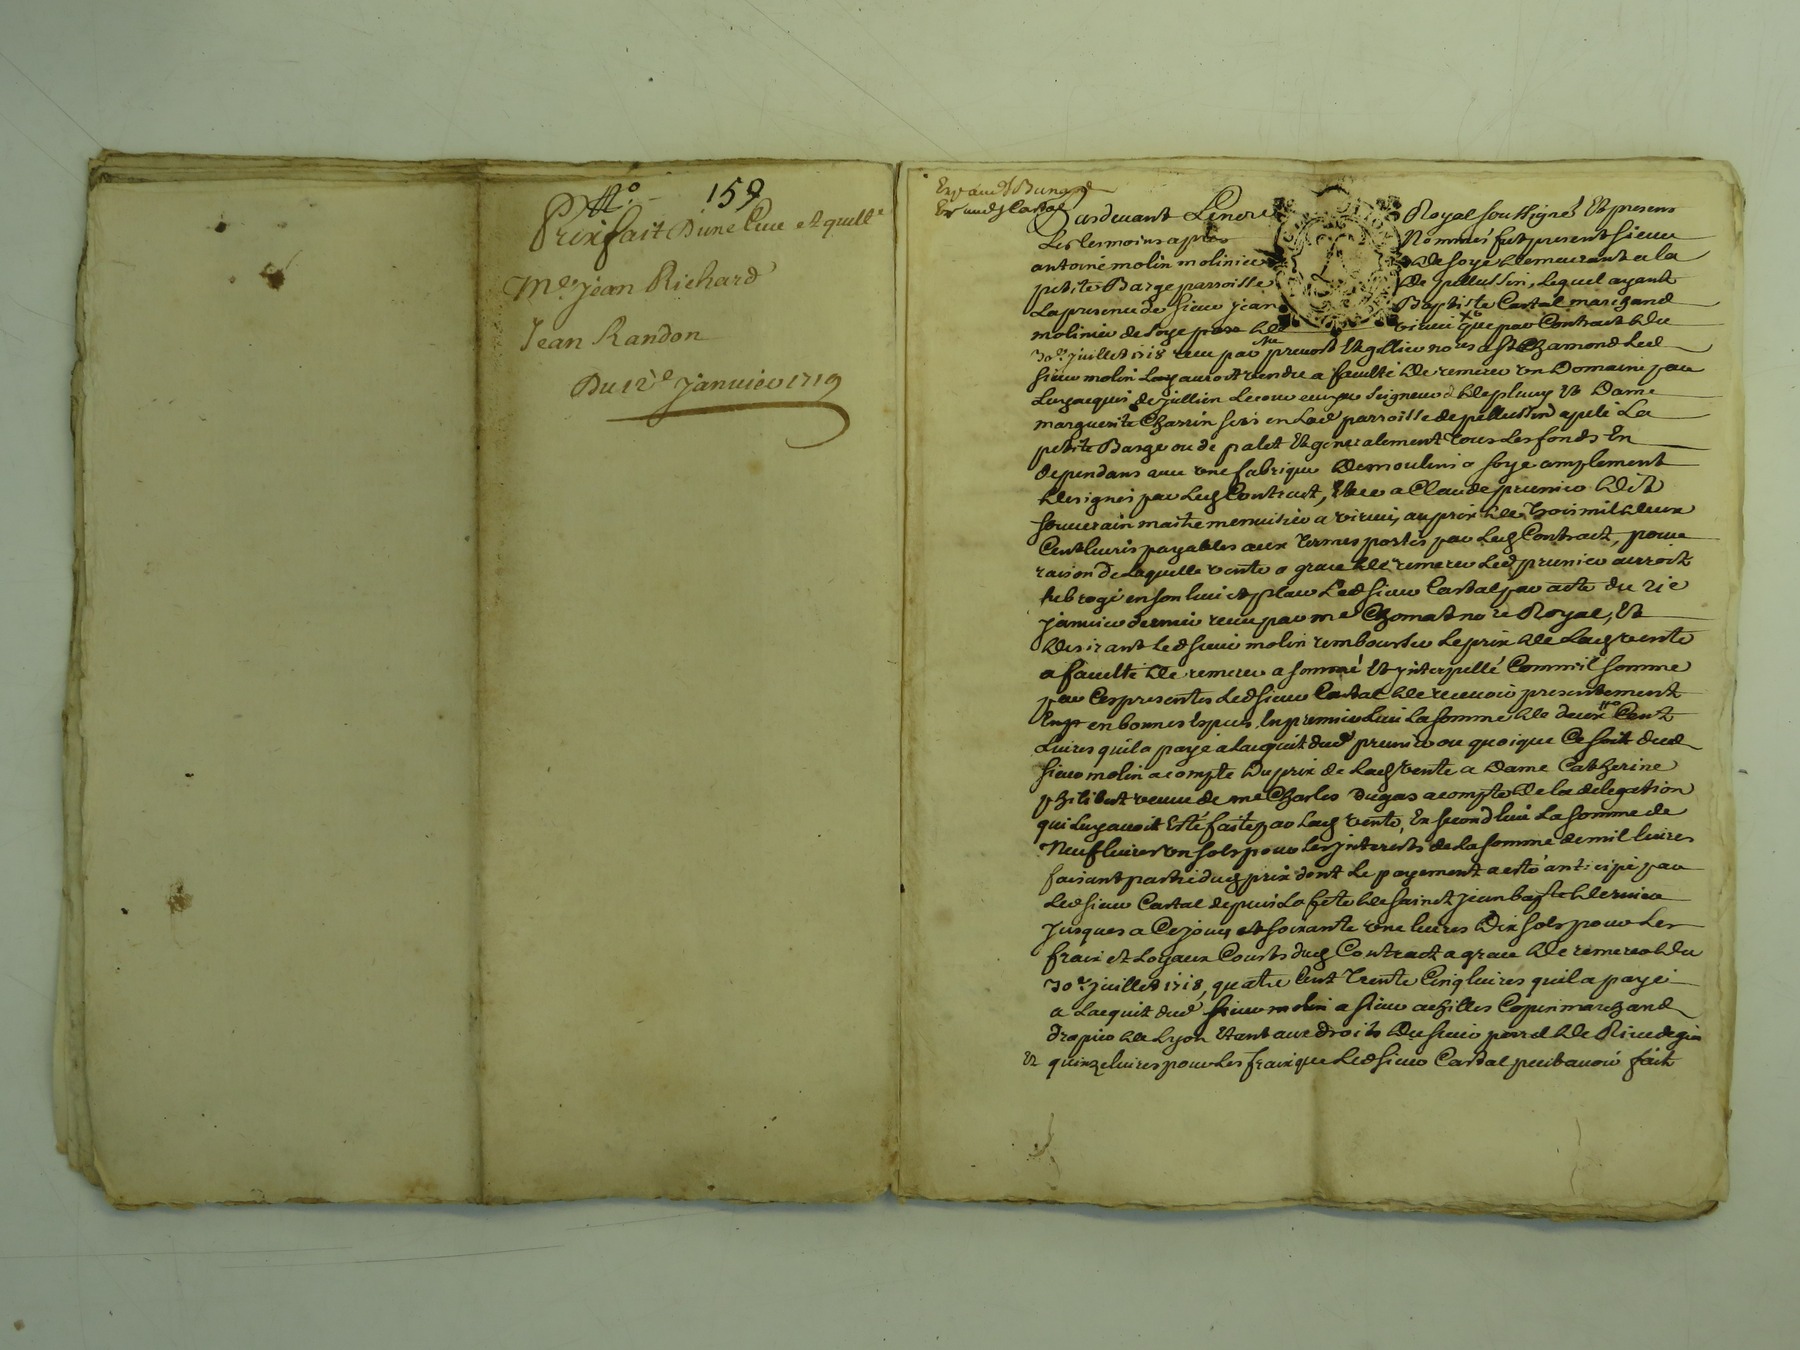 N° 159
Prixfait Dune Cuue et quitt.e
Me Jean Richard
Jean Randon
Du 12e Januier 1719
Exp aud
Exp aud s Cartal
Pardeuant Le no.re Royal soussigné Et presens
Les tesmoins apres Nommés fut present sieur
antoine molin molinier de soye demeurant a la
petite Barge parroisse de pellussin, Lequel ayant
La presence de sieur jean Baptiste Cartal marchand
molinier de soye virieu que par Contract du
30e juillet 1718 receu par Me preuost Et gllieu no.res a st Chamond Led
sieur molin Luy auroit vendu a faculté de remere vn Domaine
Luy acquis de jullien seigneur de pluuy Et Dame
marguerite Charrin sis en Lad parroisse de pellussin apelé La
petite Barge ou de palet Et generalement tous Les fonds En
dependans auec vne fabrique de moulins a soye amplement
designés par Led Contract, a Claude prunier dit
souuerain maitre menuisier a virieu, au prix de trois mil deux
Cent liures payables aux termes portés par Led Contract, pour
raison de Laquelle vente a grace de remere Led prunier auroit
subrogé en son lieu et place Led sieur Cartal par acte du
januier dernier receu par me Chomat no.re Royal, Et
desirant Led sieur molin rembourser Le prix de Lad vente
a faculté de remere a sommé Et jnterpellé Comme il somme
par Ces presentes Led sieur Cartal de receuoir presentement
en bonnes Especes, En premier Lieu La somme de deux Cent
Liures quil a payé a Lacquit dud prunier ou quoique Ce soit dud
sieur molin a compte du prix de Lad vente a Dame Catherine
philibert veuue de me Charles dugas a compte de la delegation
qui Luy auoit Esté faite par Lad vente, En second lieu La somme de
Neuf liures vn sols pour Les jnterests de La somme de mil liures
faisant partie dud prix dont Le payement a esté anticipé par
Led sieur Cartal depuis La fete de sainct jean baptte dernier
Jusques a Ce jour, et soixante vne liures dix sols pour Les
fraix et Loyaux Cousts dud Contract a grace de remere du
30e juillet 1718, quatre Cent trente Cinq liures quil a payé
a Lacquit dud sieur molin a sieur achilles Copin marchand
drapier de Lyon Etant aux droits du sieur de Riuedegier
Et quinze liures pour Les fraix que Led sieur Cartal peut auoir fait